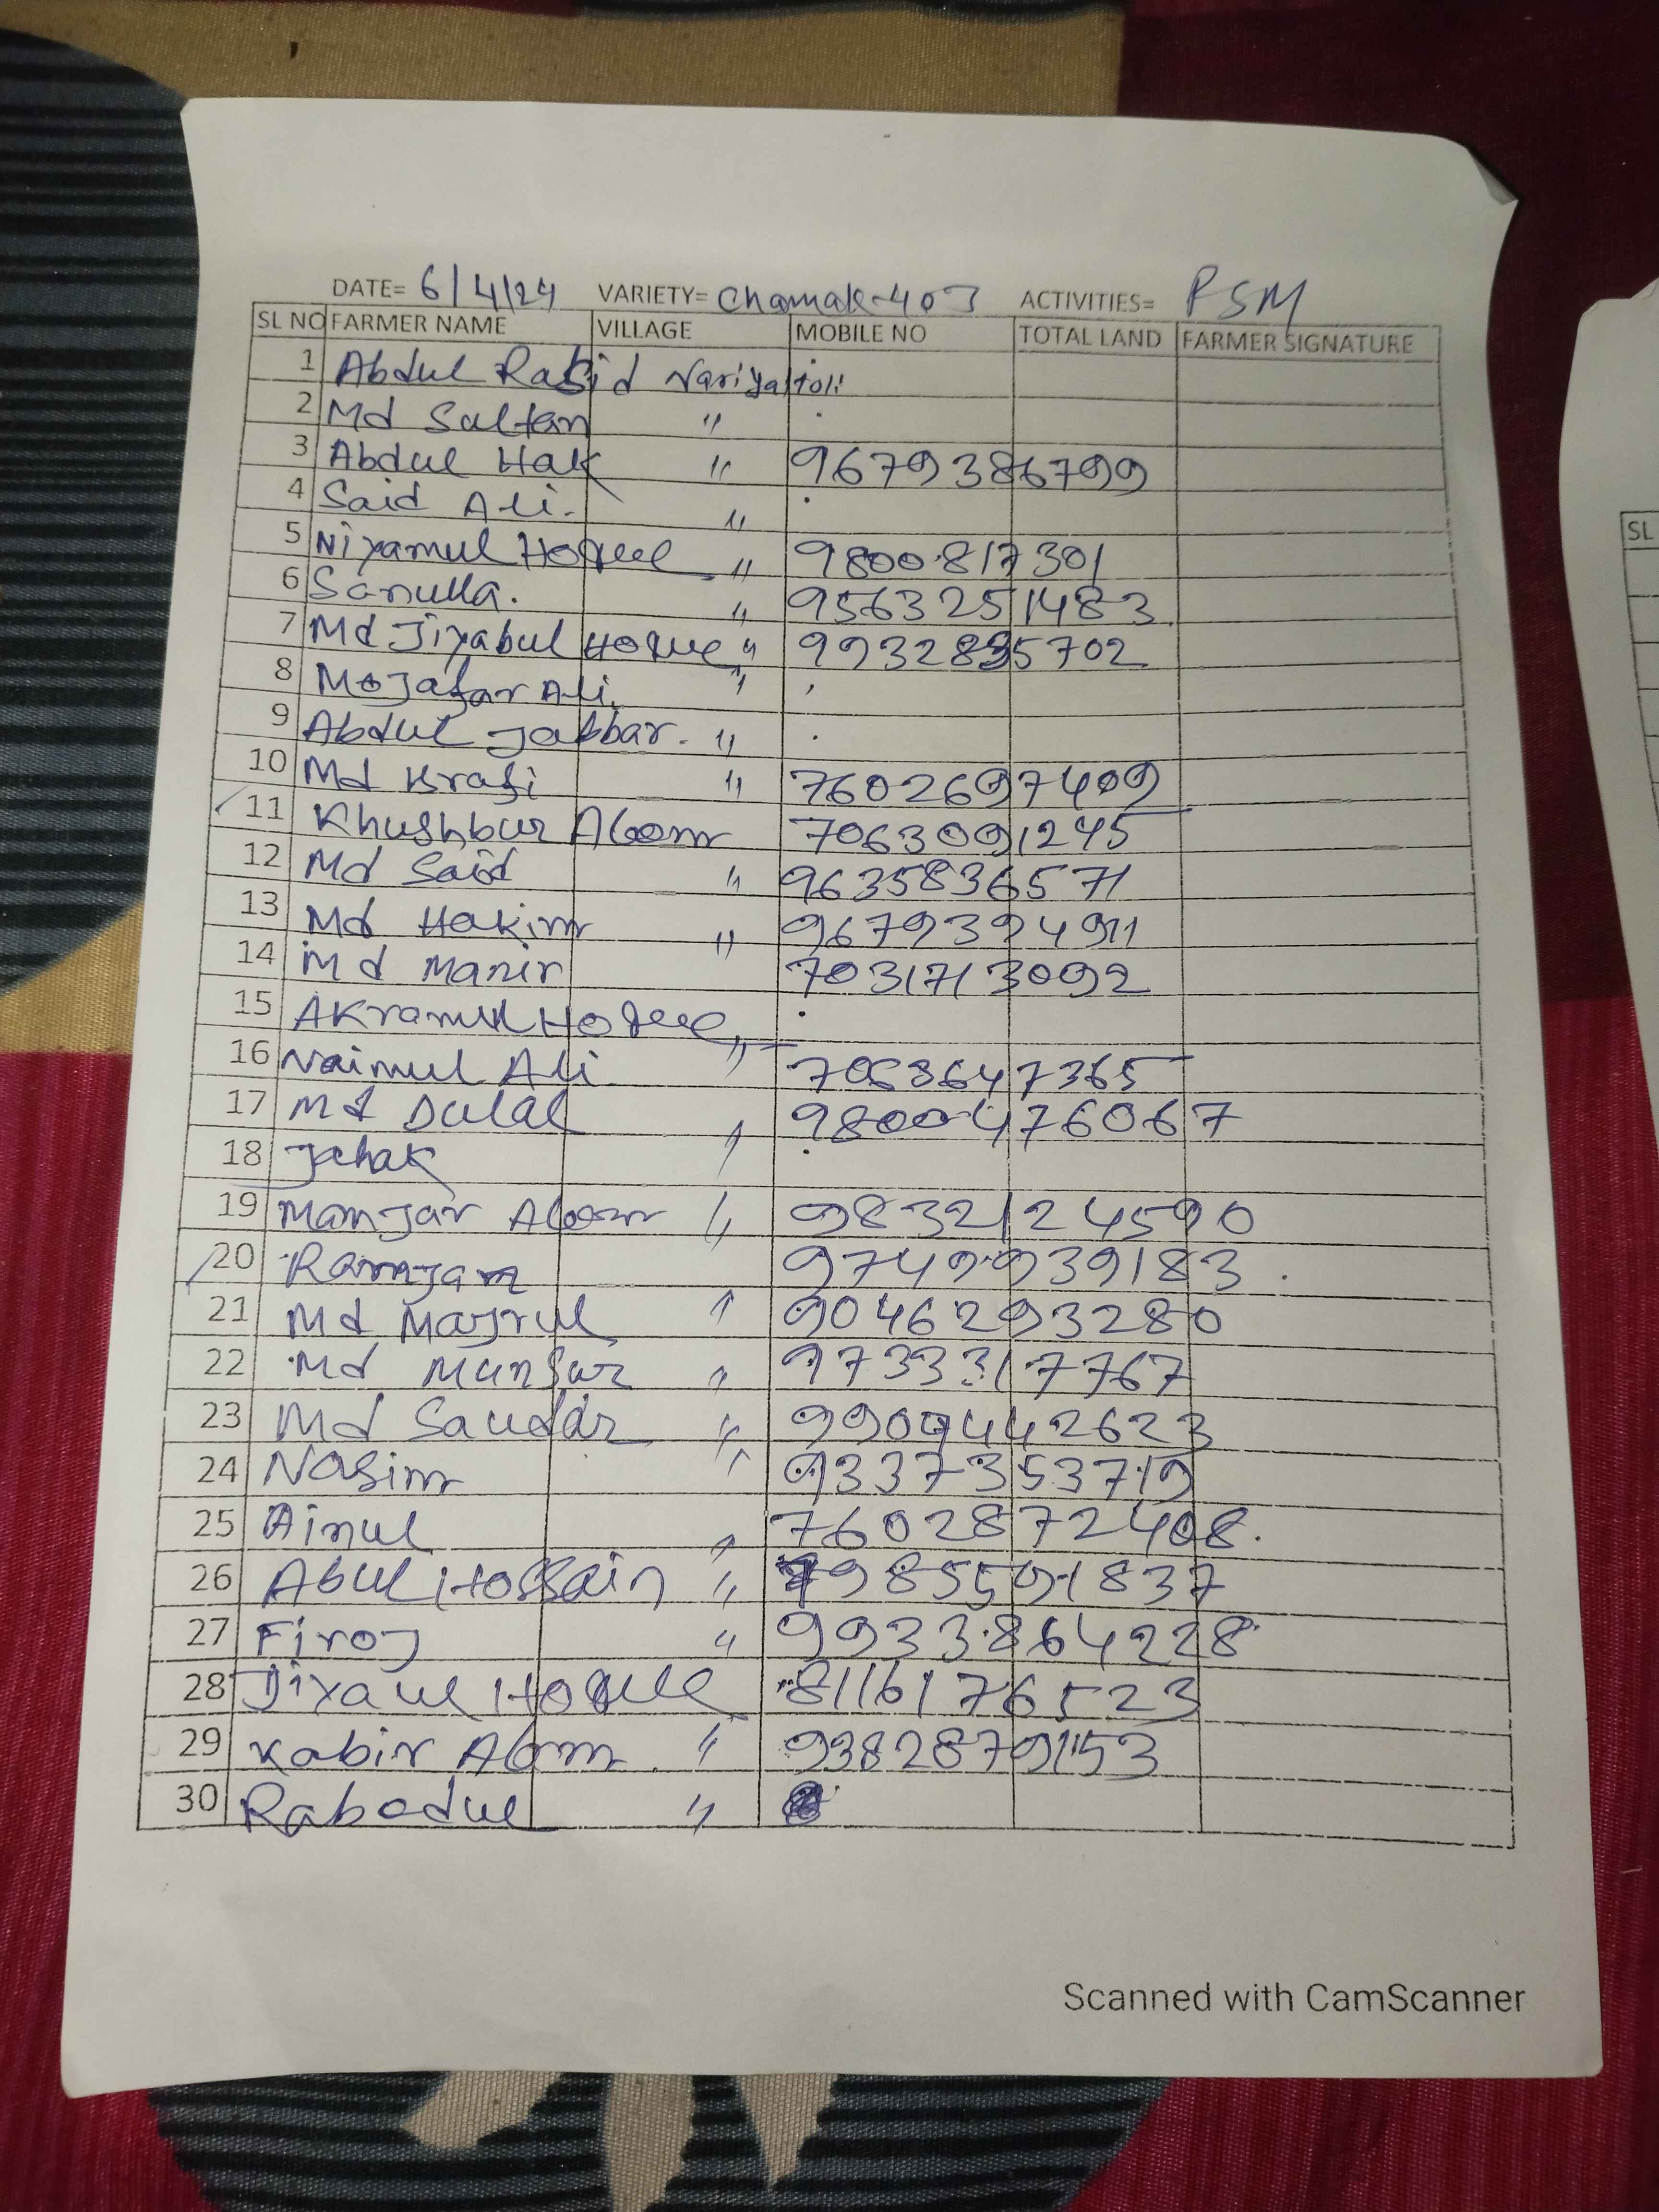 DATE= 6/4/24 VARIETY= Chamak-403 ACTIVITIES= PSM
SL NO FARMER NAME VILLAGE MOBILE NO TOTAL LAND FARMER SIGNATURE
1 Abdul Rasid Nariyaltoli
2 Md Sultan "
3 Abdul Hak " 9679386799
4 Said Ali. "
5 Niyamul Hoque " 9800817301
6 Sanulla. " 9563251483
7 Md Jiyabul Hoque " 9932895702
8 Mojafar Ali. "
9 Abdul Jabbar. "
10 Md Israfi " 7602697409
11 Khushbur Alom 7063091245
12 Md Said " 9635836571
13 Md Hakim " 9679394911
14 Md Manir 7031713092
15 Akramul Hoque "
16 Naimul Ali " 7063647365
17 Md Dulal " 9800476067
18 Jahak
19 Manjar Alom " 9832124590
20 Ramjan 9749939183
21 Md Majrul " 9046293280
22 Md Mansur " 9733317767
23 Md Sauddar " 9909442623
24 Nasim " 9337353719
25 Ainul " 7602872408.
26 Abul Hossain " 9985591837
27 Firoj " 9933864228
28 Jiyaul Hoque 8116176523
29 Kabir Alom " 9382879153
30 Rabedul "
Scanned with CamScanner
SL